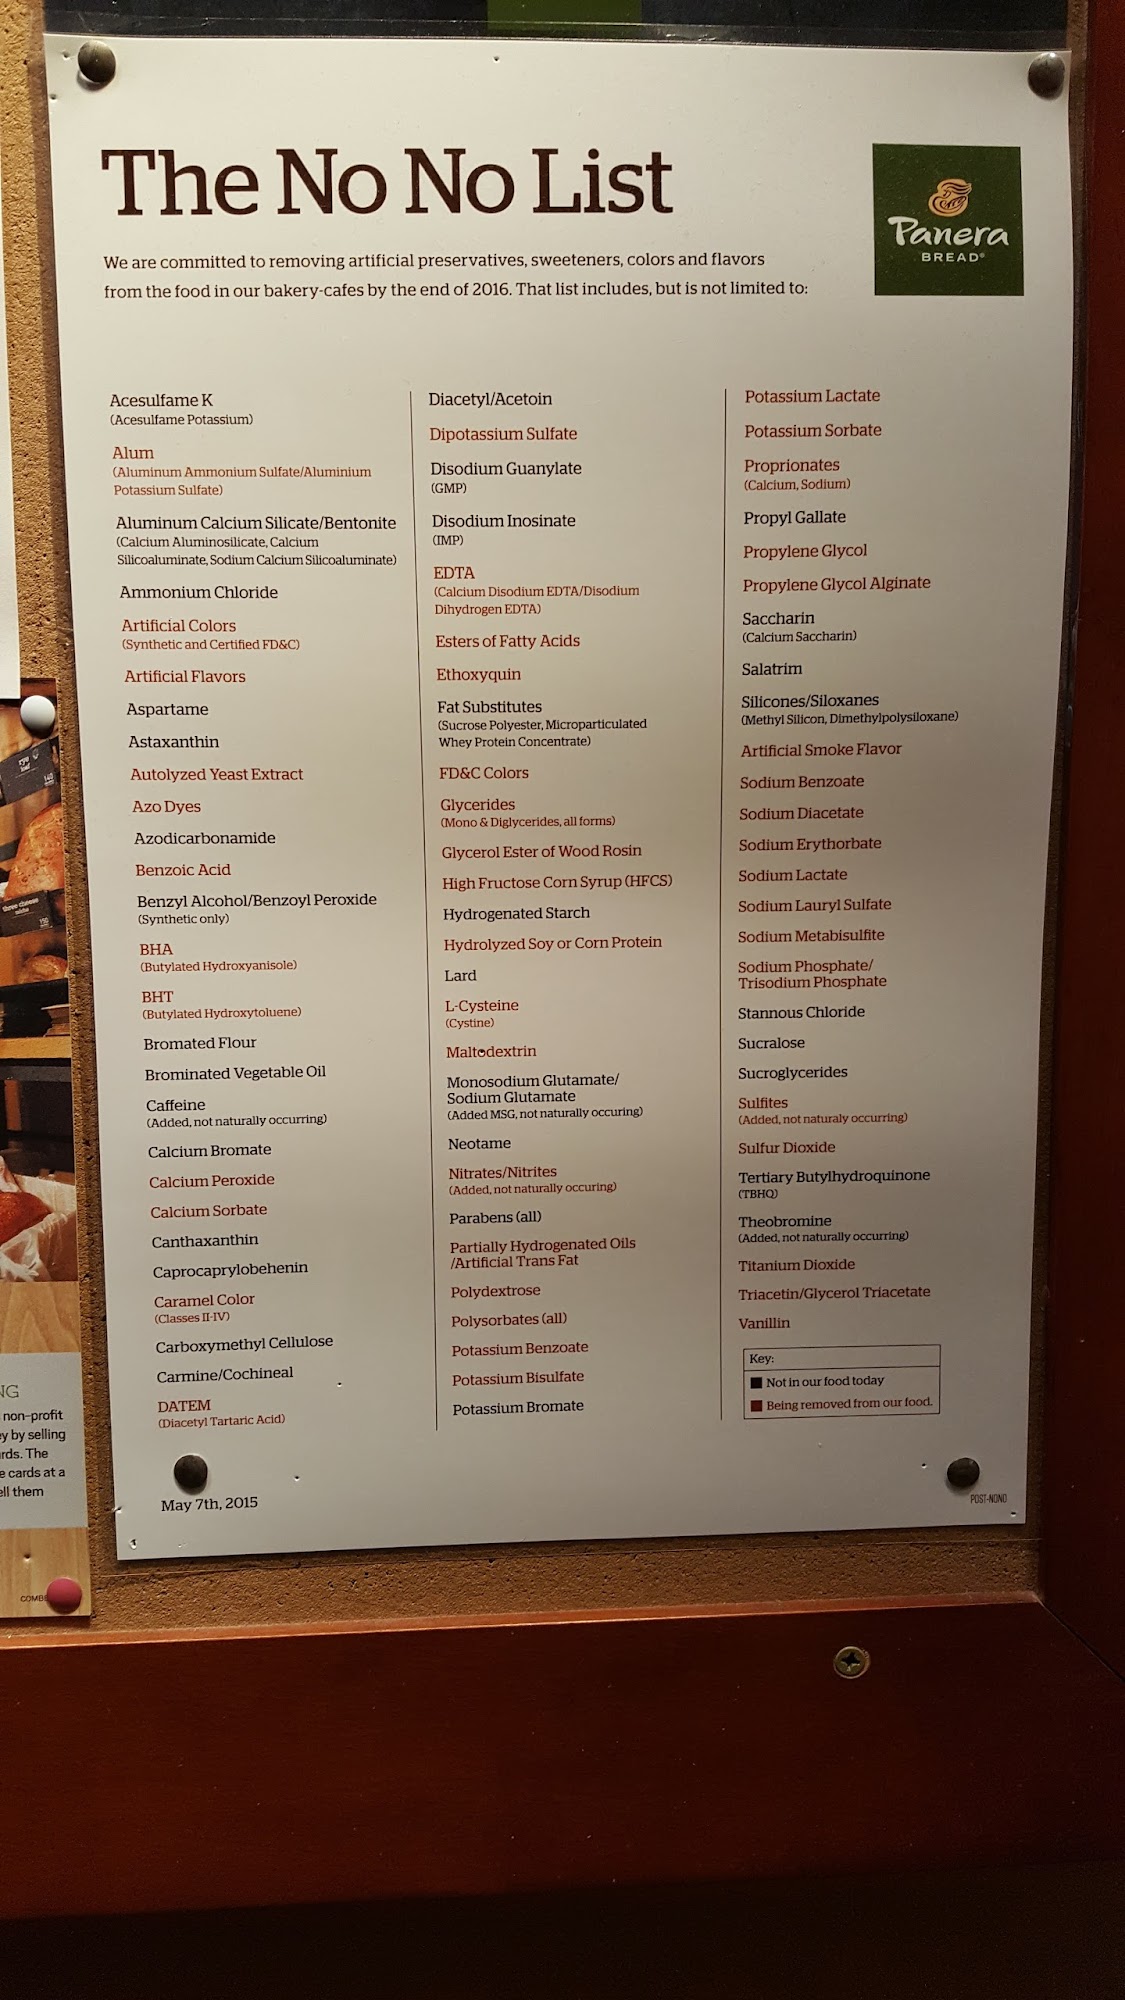 The No No List
Panera
BREAD®
We are committed to removing artificial preservatives, sweeteners, colors and flavors
from the food in our bakery-cafes by the end of 2016. That list includes, but is not limited to:
Acesulfame K
(Acesulfame Potassium)
Alum
(Aluminum Ammonium Sulfate/Aluminium
Potassium Sulfate)
Aluminum Calcium Silicate/Bentonite
(Calcium Aluminosilicate, Calcium
Silicoaluminate, Sodium Calcium Silicoaluminate)
Ammonium Chloride
Artificial Colors
(Synthetic and Certified FD&C)
Artificial Flavors
Aspartame
Astaxanthin
Autolyzed Yeast Extract
Azo Dyes
Azodicarbonamide
Benzoic Acid
Benzyl Alcohol/Benzoyl Peroxide
(Synthetic only)
BHA
(Butylated Hydroxyanisole)
BHT
(Butylated Hydroxytoluene)
Bromated Flour
Brominated Vegetable Oil
Caffeine
(Added, not naturally occurring)
Calcium Bromate
Calcium Peroxide
Calcium Sorbate
Canthaxanthin
Caprocaprylobehenin
Caramel Color
(Classes II-IV)
Carboxymethyl Cellulose
Carmine/Cochineal
DATEM
(Diacetyl Tartaric Acid)
Diacetyl/Acetoin
Dipotassium Sulfate
Disodium Guanylate
(GMP)
Disodium Inosinate
(IMP)
EDTA
(Calcium Disodium EDTA/Disodium
Dihydrogen EDTA)
Esters of Fatty Acids
Ethoxyquin
Fat Substitutes
(Sucrose Polyester, Microparticulated
Whey Protein Concentrate)
FD&C Colors
Glycerides
(Mono & Diglycerides, all forms)
Glycerol Ester of Wood Rosin
High Fructose Corn Syrup (HFCS)
Hydrogenated Starch
Hydrolyzed Soy or Corn Protein
Lard
L-Cysteine
(Cystine)
Maltodextrin
Monosodium Glutamate/
Sodium Glutamate
(Added MSG, not naturally occuring)
Neotame
Nitrates/Nitrites
(Added, not naturally occuring)
Parabens (all)
Partially Hydrogenated Oils
/Artificial Trans Fat
Polydextrose
Polysorbates (all)
Potassium Benzoate
Potassium Bisulfate
Potassium Bromate
Potassium Lactate
Potassium Sorbate
Proprionates
(Calcium, Sodium)
Propyl Gallate
Propylene Glycol
Propylene Glycol Alginate
Saccharin
(Calcium Saccharin)
Salatrim
Silicones/Siloxanes
(Methyl Silicon, Dimethylpolysiloxane)
Artificial Smoke Flavor
Sodium Benzoate
Sodium Diacetate
Sodium Erythorbate
Sodium Lactate
Sodium Lauryl Sulfate
Sodium Metabisulfite
Sodium Phosphate/
Trisodium Phosphate
Stannous Chloride
Sucralose
Sucroglycerides
Sulfites
(Added, not naturaly occurring)
Sulfur Dioxide
Tertiary Butylhydroquinone
(TBHQ)
Theobromine
(Added, not naturally occurring)
Titanium Dioxide
Triacetin/Glycerol Triacetate
Vanillin
Key:
Not in our food today
Being removed from our food.
May 7th, 2015
POST-NONO
three cheese
NG
non-profit
y by selling
rds. The
e cards at a
ell them